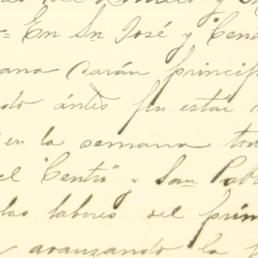 En Sn José y "Cen
ana darán princip
do ántes fin esta
en la semana tra
el "Centro" y San Pabl
las labores del prim
avanzando la